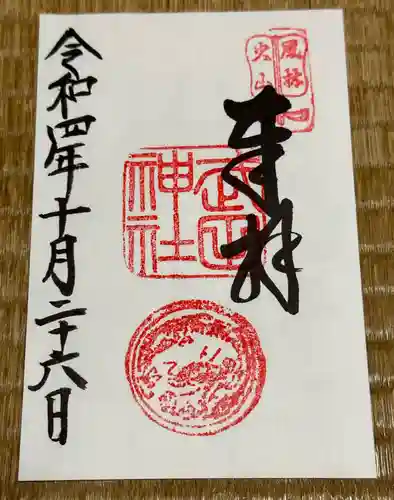 風林
火山
奉拝
武田
神社
令和四年十月二十六日